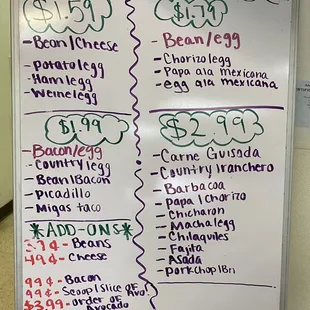 $1.59
- Bean/Cheese
- potato/egg
- Ham/egg
- Weine/egg
- Bean/egg
- Chorizo/egg
- Papa ala mexicana
- egg ala mexicana
$1.99
- Bacon/egg
- Country/egg
- Bean/Bacon
- Picadillo
- Migas taco
$2.99
- Carne Guisada
- Country/ranchero
- Barbacoa
- Papa/Chorizo
- Chicharon
- Macha/egg
- Chilaquiles
- Fajita
- Asada
- Porkchop/Bri
*ADD-ONS*
- Beans
49¢- Cheese
99¢- Bacon
99¢- Scoop/Slice of Avo.
$3.99- order of Avocado